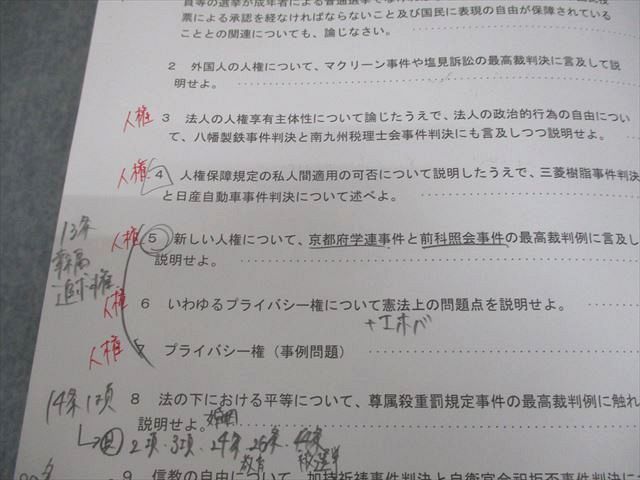 員等の選挙が成年者による普通選挙で
票による承認を経なければならないこと及び国民に表現の自由が保障されている
こととの関連についても、論じなさい。
2 外国人の人権について、マクリーン事件や塩見訴訟の最高裁判決に言及して説
明せよ。
人権 3 法人の人権享有主体性について論じたうえで、法人の政治的行為の自由につい
て、八幡製鉄事件判決と南九州税理士会事件判決にも言及しつつ説明せよ。
人権 4 人権保障規定の私人間適用の可否について説明したうえで、三菱樹脂事件判決
と日産自動車事件判決について述べよ。
13条
幸福
追求権
人権 5 新しい人権について、京都府学連事件と前科照会事件の最高裁判例に言及し
説明せよ。
人権 6 いわゆるプライバシー権について憲法上の問題点を説明せよ。
+エホバ
人権 7 プライバシー権（事例問題）
14条1項
8 法の下における平等について、尊属殺重罰規定事件の最高裁判例に触れ
説明せよ。
婚姻
2項・3項・24条・26条・44条
教育 被選挙
9 信教の自由について、加持祈祷事件判決と自衛官合祀拒否事件判決に